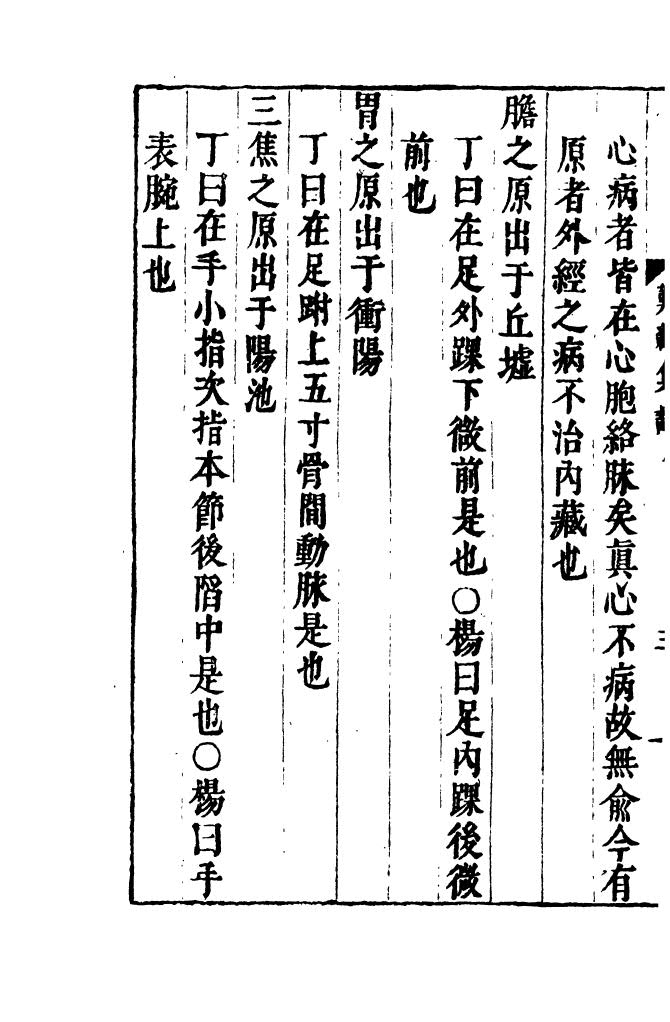 心病者皆在心胞絡脉矣真心不病故無俞今有
原者外經之病不治內藏也
膽之原出于丘墟
丁曰在足外踝下微前是也○楊曰足內踝後微
前也
胃之原出于衝陽
丁曰在足跗上五寸骨間動脉是也
三焦之原出于陽池
丁曰在手小指次指本節後陷中是也○楊曰手
表腕上也